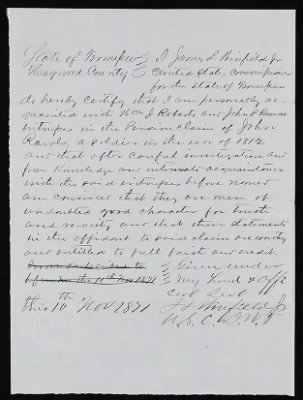 State of Tennessee } I James L Winfield Jr
Haywood County } United States Commissioner
for the State of Tennessee
do hereby certify that I am personally ac-
quainted with Wm J Roberts and John P
witnesses in the Pension claim of John
a soldier in the war of 1812
and that after careful investigation and
from Knowledge and intimate acquaintance
with the said witnesses before named
am convinced that they are men of
undoubted good character for truth
and veracity and that their statements
in the affidavit to said claim are worthy
and entitled to full faith and credit.
Sworn subscribed to } Given under
before me the 10th Nov 1871 } My hand & Offi
cial Seal
this 10th Nov 1871 Winfield Jr
U.S.C.